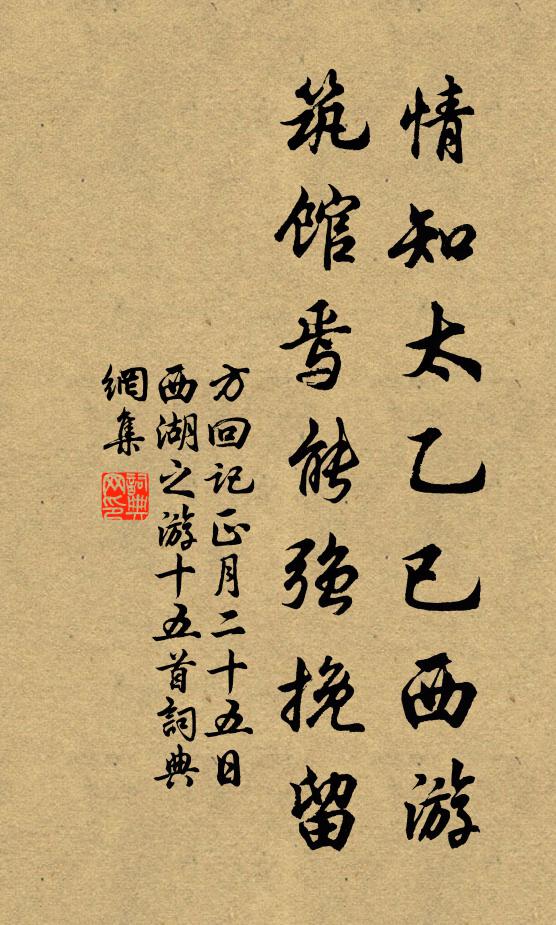 情知太乙已西游
筑馆焉能强挽留
方回记正月二十五日
西湖之游十五首詞典
網集
詞典
网印